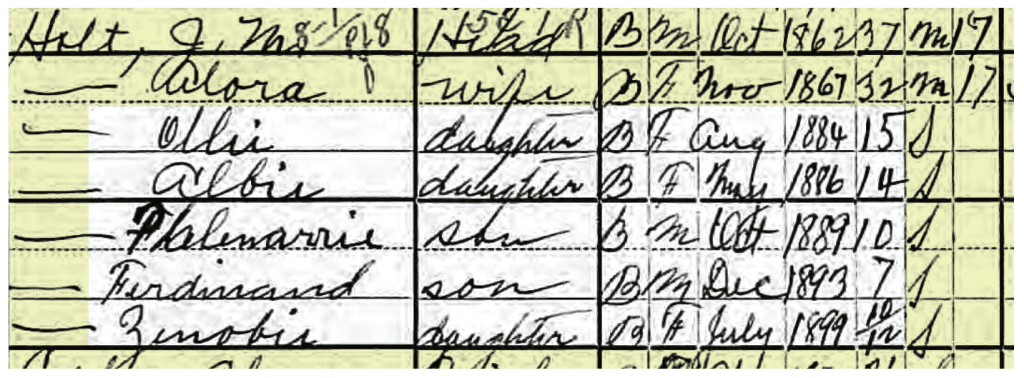 Holt, J. M. Head B M Oct 1862 37 M 17
— Alora wife B F Nov 1867 32 M 17
— Ollie daughter B F Aug 1884 15 S
— Albie daughter B F May 1886 14 S
— Phlenarrie son B M Oct 1889 10 S
— Ferdinand son B M Dec 1893 7 S
— Zenobie daughter B F July 1899 10/12 S